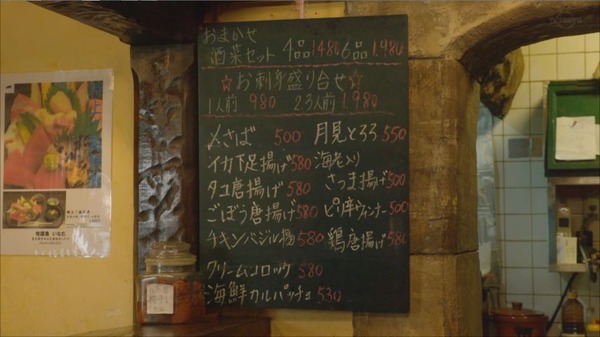 おまかせ
酒菜セット 4品1480 6品1,980
☆お刺身盛り合せ☆
1人前 980 2.3人前 1,980
〆さば 500 月見とろろ 550
イカ下足揚げ580 海老入り
タコ唐揚げ580 さつま揚げ500
ごぼう唐揚げ580 ピリ辛ウィンナー500
チキンバジル揚580 鶏唐揚げ580
クリームコロッケ 580
海鮮カルパッチョ 530